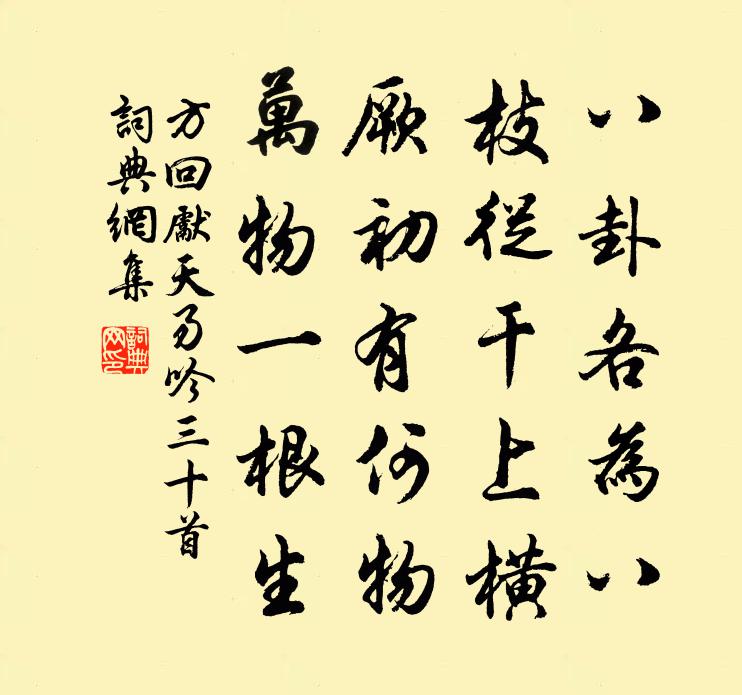 八卦各為八
枝從干上橫
厥初有何物
萬物一根生
方回獻天易吟三十首
詞典網集
詞典網印